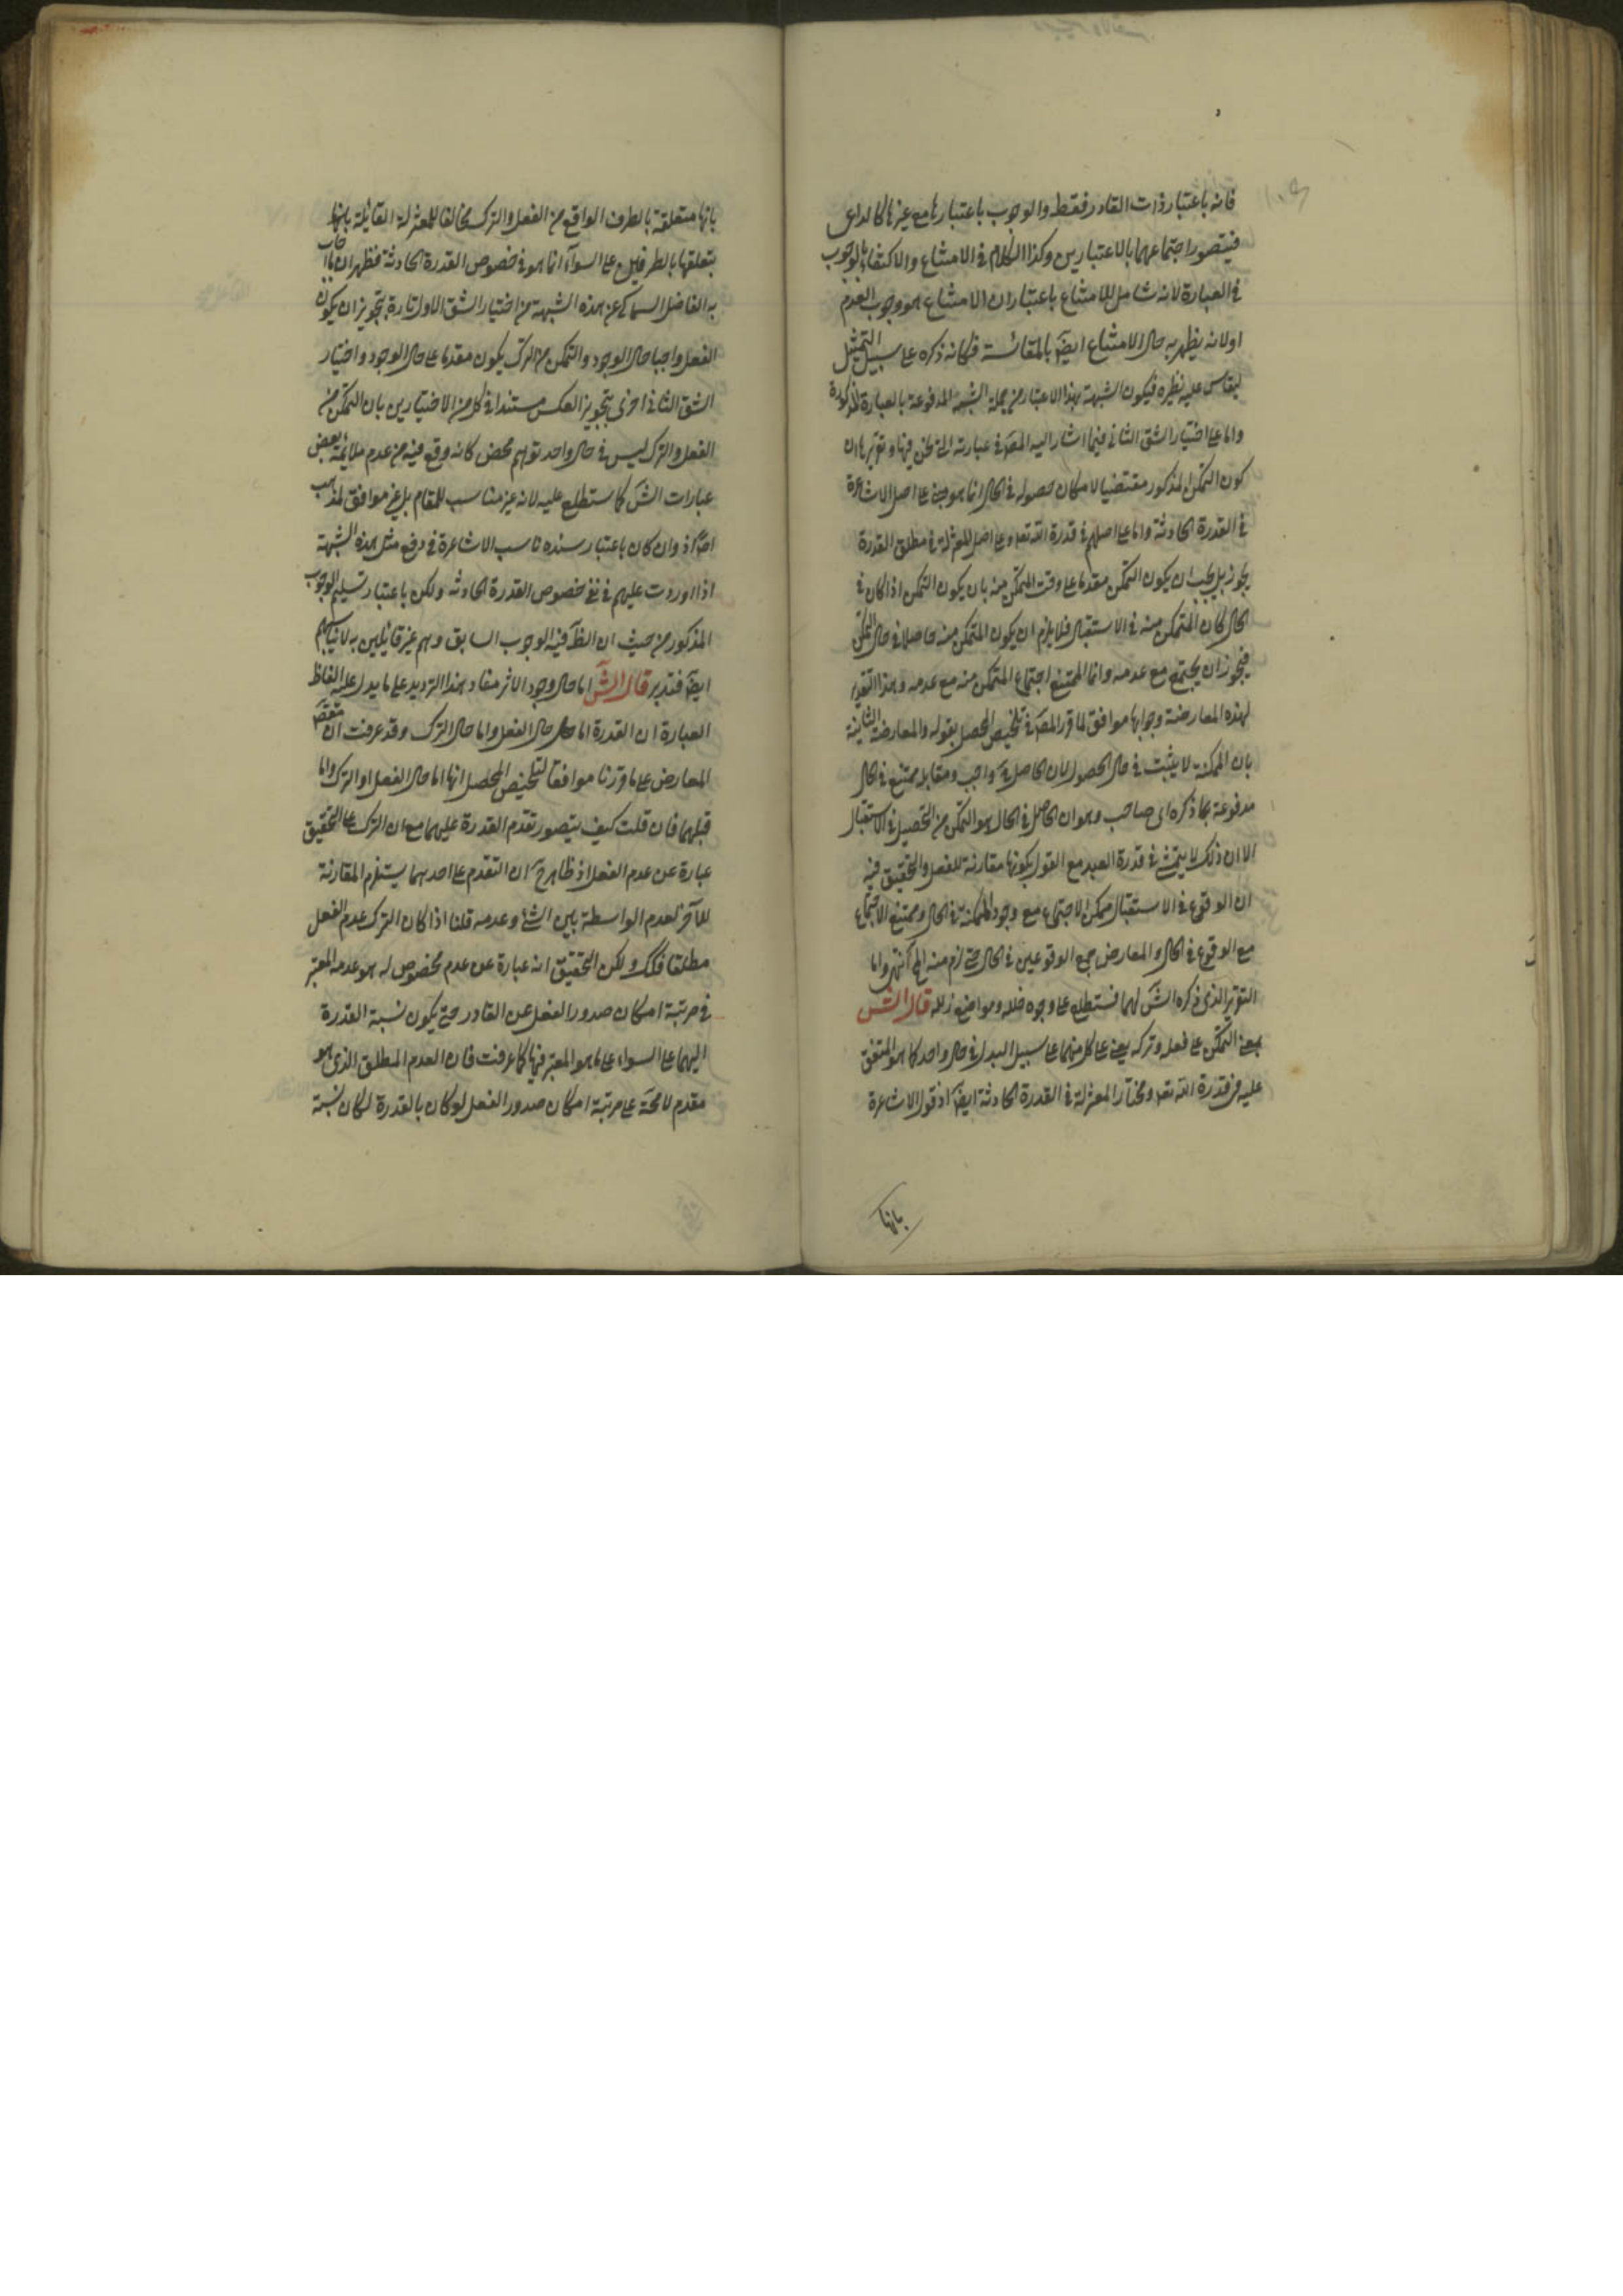 فانه باعتبار ذات القادر فقط والوجوب باعتبارها مع غيرها كالداعى
فيتصور اجتماعهما بالاعتبارين وكذا الكلام فى الامتناع والاكتفاء بالوجوب
فى العبارة لانه شامل للامتناع باعتبار ان الامتناع هو وجوب العدم
اولانه يظهر به حال الامتناع ايضَ بالمقائسة فكانه ذكره على سبيل التمثيل
ليقاس عليه نظيره فيكون الشبهة بهذا الاعتبار من جملة الشبه المدفوعة بالعبارة المذكورة
واما على اختيار الشق الثانى فيما اشار اليه المصَ فى عبارته التى نحن فيها وتقريرها ان
كون التمكن المذكور مقتضيا لامكان حصوله فى الحال انما هو مبنى على اصل الاشاعرة
فى القدرة الحادثة واما على اصلهم فى قدرة الله تعه وعلى اصل المعتزلة فى مطلق القدرة
يجوز بل يجب ان يكون التمكن مقدما على وقت المتمكن منه بان يكون التمكن اذا كان فى
الحال كان المتمكن منه فى الاستقبال فلا يلزم ان يكون المتمكن منه حاصلا فى حال التمكن
فيجوز ان يجتمع مع عدمه وانما الممتنع اجتماع المتمكن منه مع عدمه وبهذا التقرير
لهذه المعارضة وجوابها موافق لما قرر المصَ فى تلخيص المحصل بقوله والمعارضة الثانية
بان المكنة لا يثبت فى حال الحصول لان الحاصل فيه واجب ومقابله ممتنع فى الحال
مدفوعة بما ذكره اى صاحب وهو ان الحاصل فى الحال هو التمكن من التحصيل فى الاستقبال
الا ان ذلك لا يتمشى فى قدرة العبد مع القول بكونها مقارنة للفعل والتحقيق فيه
ان الوقوع فى الاستقبال ممكن الاجتماع مع وجود المكنة فى الحال وممتنع الاجتماع
مع الوقوع فى الحال والمعارض جمع الوقوعين فى الحال حتى لزم منه المحَ انتهى واما
التقرير الذى ذكره الشَ لهما فستطلع على وجوه خلله ومواضع زلله قال الشَ
بمعنى التمكن على فعله وتركه يعنى على كل منهما على سبيل البدل فى حال واحد كما هو المتفق
عليه فى قدرة الله تعه ومختار المعتزلة فى القدرة الحادثة ايضَ اذ قول الاشاعرة
بانها
بانها متعلقة بالطرف الواقع من الفعل والترك مخالفا للمعتزلة القائلة بانها
بتعلقها بالطرفين على السواء انما هو فى خصوص القدرة الحادثة فظهر ان ما اجاب
به الفاضل السماكى عن هذه الشبهة من اختيار الشق الاول تارة بتجويز ان يكون
الفعل واجبا حال الوجود والتمكن من الترك يكون مقدما على حال الوجود واختيار
الشق الثانى اخرى بتجويز العكس مستندا فى كل من الاختيارين بان التمكن من
الفعل والترك ليس فى حال واحد توهم محض كانه وقع فيه من عدم ملايمة بعض
عبارات الشَ كما ستطلع عليه لانه غير مناسب للمقام بل غير موافق لمذهب
احد اذ وان كان باعتبار سنده ناسب الاشاعرة فى دفع مثل هذه الشبهة
اذا اوردت عليهم فى نفى خصوص القدرة الحادثة ولكن باعتبار تسليم الوجوب
المذكور من حيث ان الظَ فيه الوجوب السابق وهم غير قائلين به لا يناسبهم
ايضَ فتدبر قال الشَ اما حال وجود الاثر مفاد هذا الترديد على ما يدل عليه الفاظ
العبارة ان القدرة اما حال الفعل واما حال الترك وقد عرفت ان مقصَ
المعارض على ما قررنا موافقا لتلخيص المحصل انها اما حال الفعل او الترك واما
قبلهما فان قلت كيف يتصور تقدم القدرة عليهما مع ان الترك على التحقيق
عبارة عن عدم الفعل اذ ظاهر حَ ان التقدم على احدهما يستلزم المقارنة
للآخر لعدم الواسطة بين الشئ وعدمه قلنا اذا كان الترك عدم الفعل
مطلقا فكك ولكن التحقيق انه عبارة عن عدم مخصوص له هو عدمه المعتبر
فى مرتبة امكان صدور الفعل عن القادر حتى يكون نسبة القدرة
اليهما على السواء على ما هو المعتبر فيها كما عرفت فان العدم المطلق الذى هو
مقدم لا محَة على مرتبة امكان صدور الفعل لو كان بالقدرة لكان نسبة